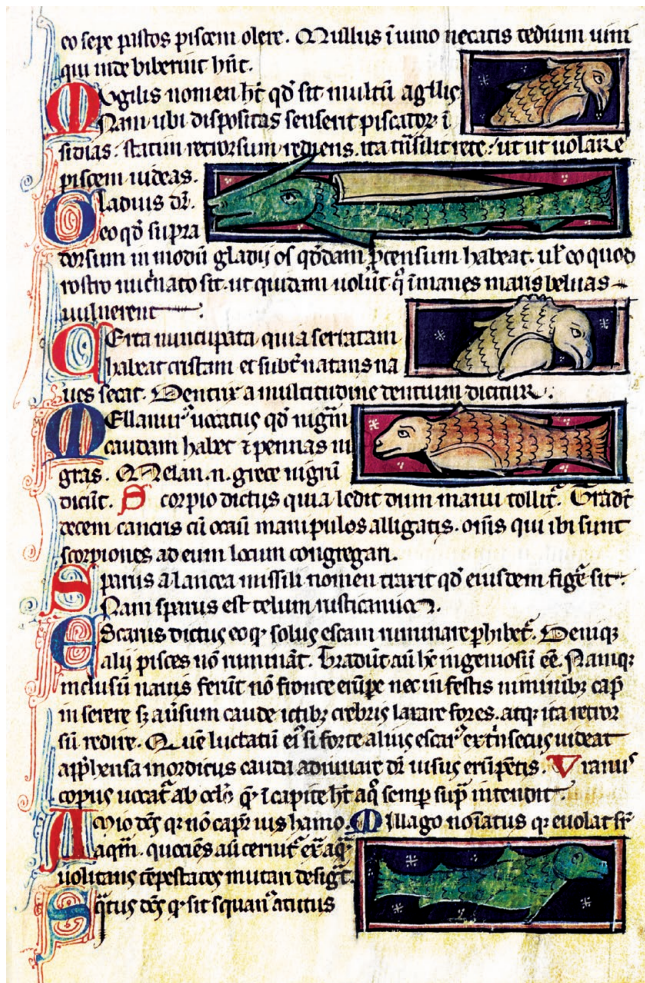 eo sepe pastos piscem olere. Mullus i uino necatis tedium uini
qui inde biberint hnt.
Mugilis nomen ht qd sit multu agilis
Nam ubi dispositas senserit piscator i
sidias. statim retrorsum rediens. ita tnsilit rete. ut ut uolare
piscem uideas.
Gladius dr.
eo qd supra
dorsum in modu gladii os qddam ptensum habeat. ul eo quod
rostro mucnato sit. ut quidam uolut q imanes maris beluas
uulnerent
Serra nuncupata quia serratam
habeat cristam et subt natans na
ues secat. Dentix a multitudine dentium dicitur.
Mellanur uocatus qd nigram
caudam habet & pennas ni
gras. Melan. n. grece nigru
dicut. Scorpio dictus quia ledit dum manu tollit. Tradt
decem cancris cu ocim manipulos alligatis. omis qui ibi sunt
scorpiones ad eum locum congregari.
Sparus a lancea missili nomen traxit qd eiusdem fige sit.
Nam sparus est telum rusticanum.
Escarus dictus eo q solus escam ruminare phibet. Deniq
alii pisces no ruminat. Tradut au hc ingeniosu ee. Namq
inclusu nassis ferut no fronte erupe nec infestis uiminibz cap
inserere sz auersum caude ictibz crebris laxare fores. atq ita retror
su redire. Que luctatu ei si forte alius escar extnsecus uideat
apphensa mordicus cauda adiuuare dr nisus erupetis. Uranus
copius uocat ab celo q i capite ht a q semp sup intendit
Amio dcs qr no capr nis hamo. Millago noiatus qr euolat sr
aqm. quociens au cernit ex aq
uolitans tepestates mutari desigt.
Sqtus dcs q sit squamatus acutus